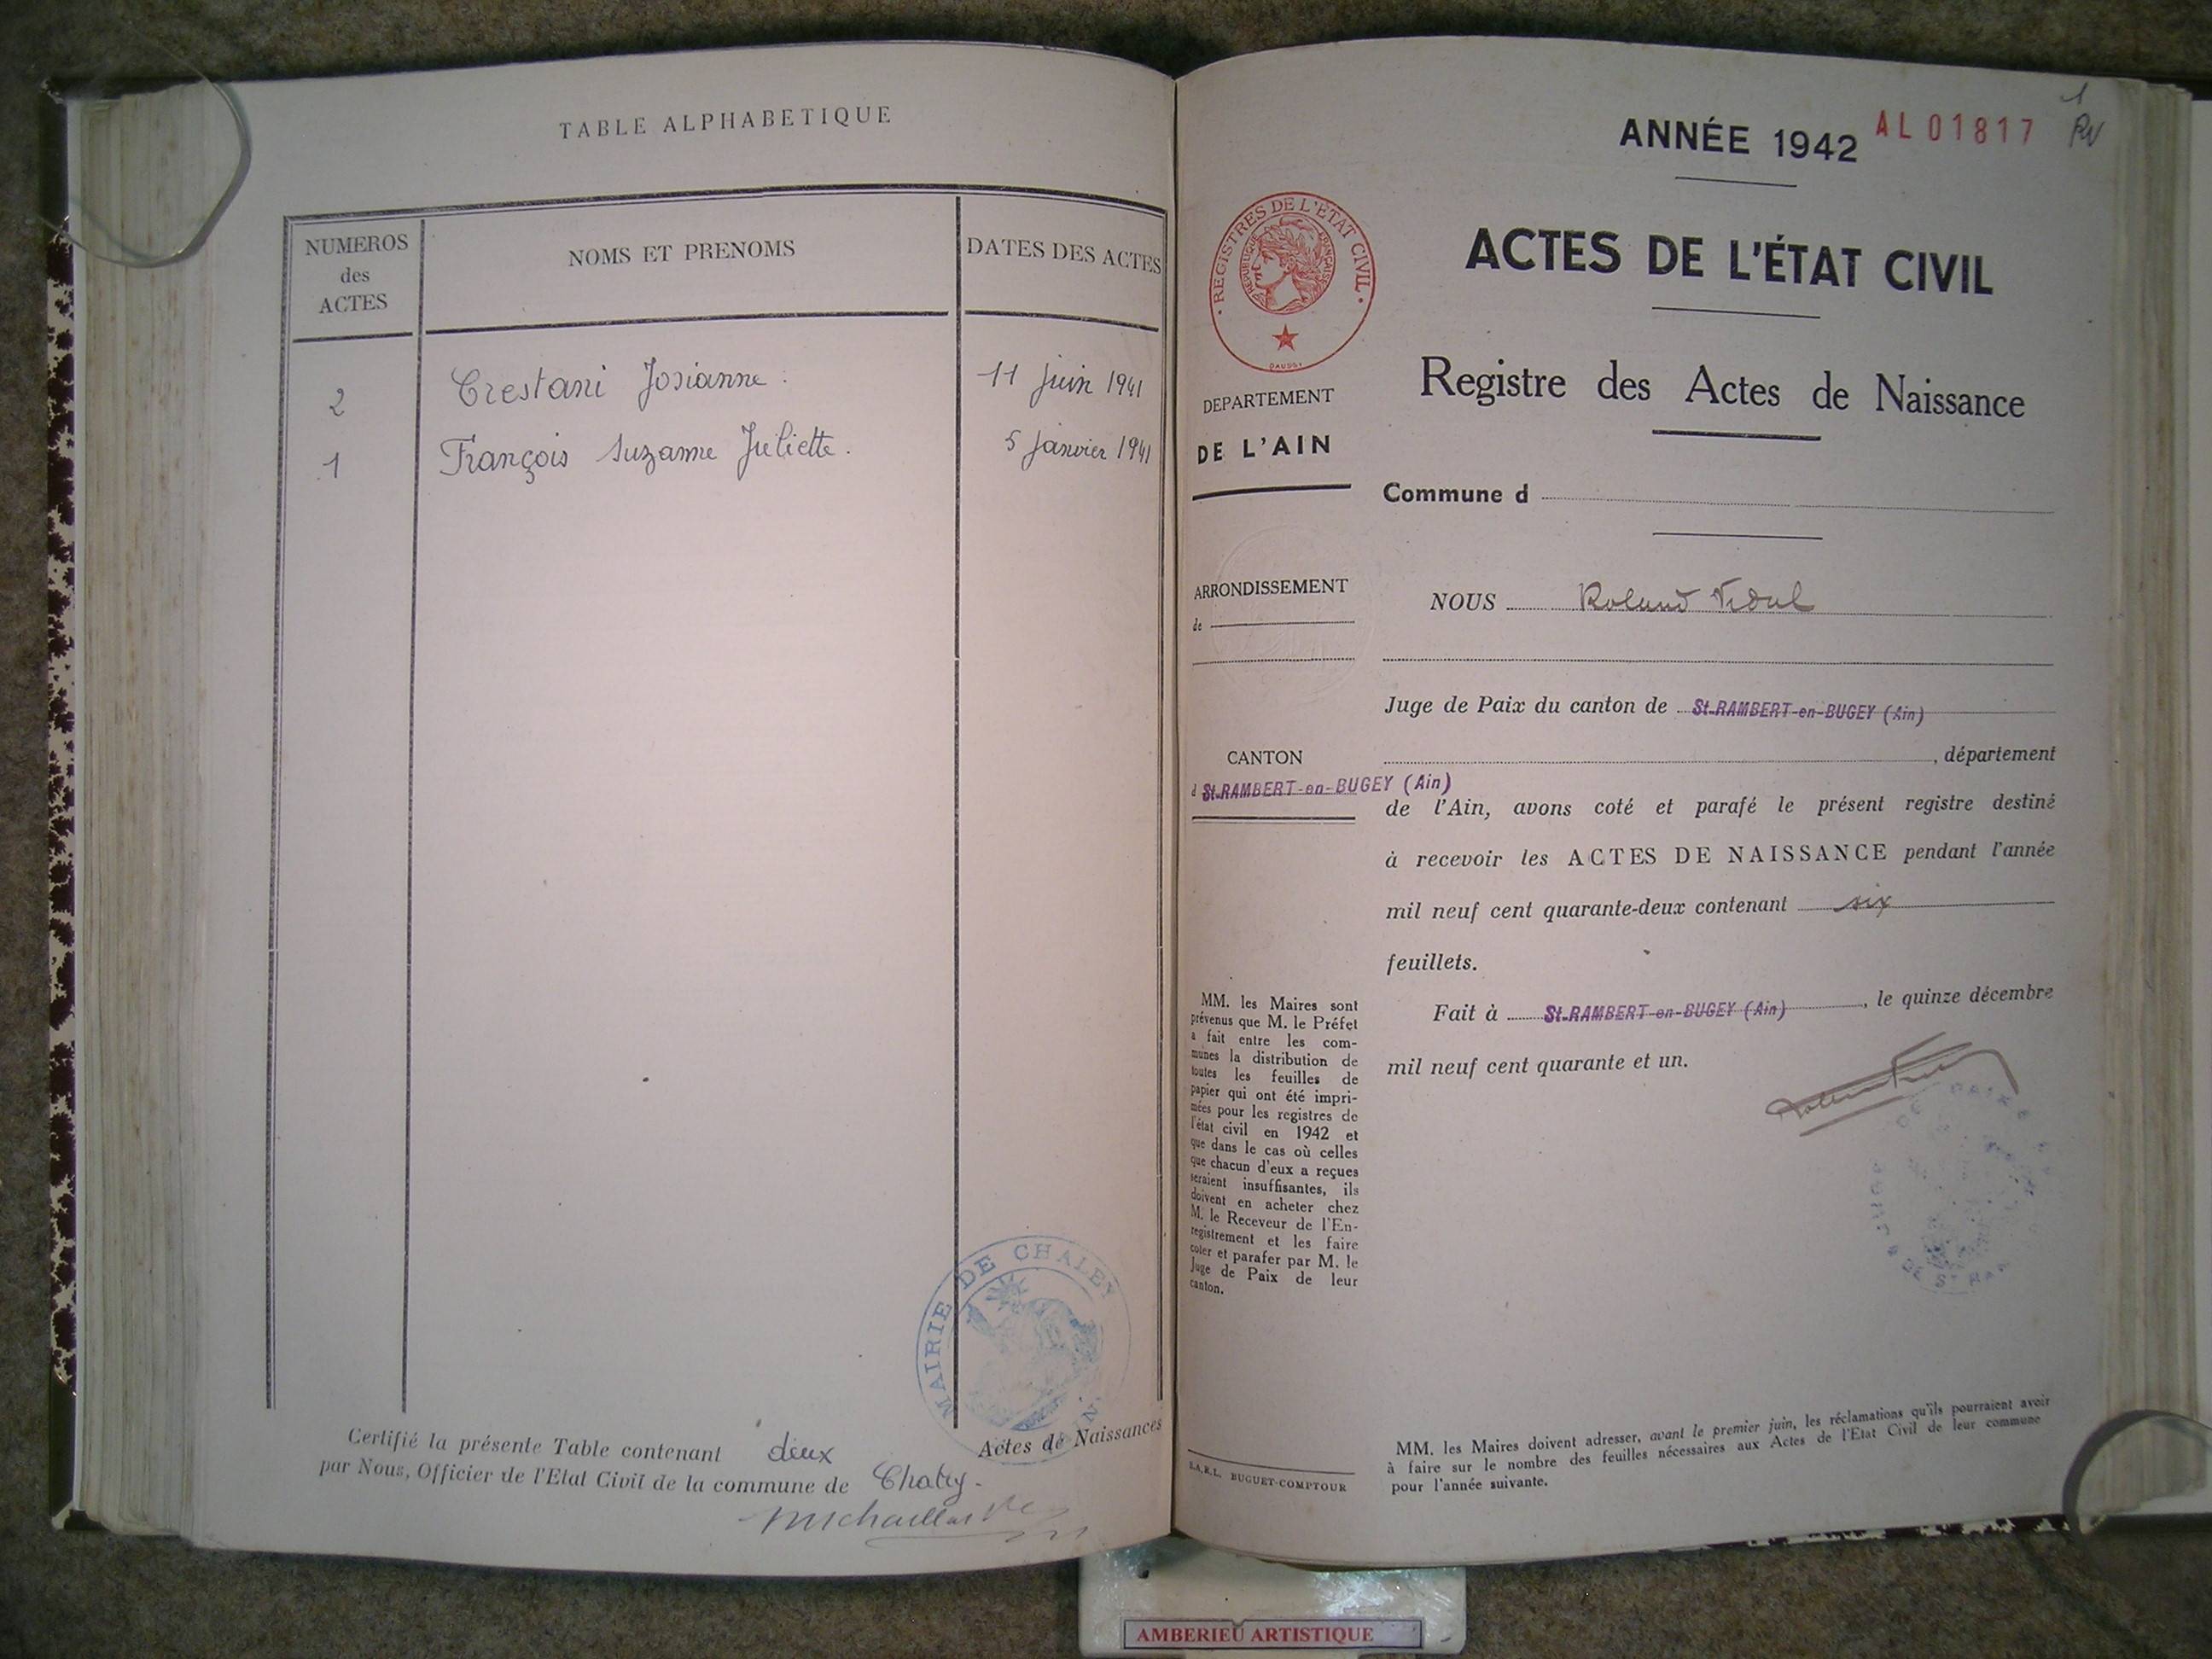 TABLE ALPHABETIQUE
NUMEROS
des
ACTES
NOMS ET PRENOMS
DATES DES ACTES
2 Crestani Josianne. 11 juin 1941
1 François Suzanne Juliette. 5 janvier 1941
MAIRIE DE CHALEY
AIN
Certifié la présente Table contenant deux Actes de Naissances
par Nous, Officier de l'Etat Civil de la commune de Chaley.
ANNÉE 1942
AL01817
1
RV
REGISTRES DE L'ÉTAT CIVIL
REPUBLIQUE FRANÇAISE
DAUSSY
ACTES DE L'ÉTAT CIVIL
Registre des Actes de Naissance
DEPARTEMENT
DE L'AIN
Commune d
ARRONDISSEMENT
de
NOUS Roland Vidal
Juge de Paix du canton de St-RAMBERT-en-BUGEY (Ain)
, département
CANTON
d St-RAMBERT-en-BUGEY (Ain)
de l'Ain, avons coté et parafé le présent registre destiné
à recevoir les ACTES DE NAISSANCE pendant l'année
mil neuf cent quarante-deux contenant six
feuillets.
Fait à St-RAMBERT-en-BUGEY (Ain), le quinze décembre
mil neuf cent quarante et un.
MM. les Maires sont
prévenus que M. le Préfet
a fait entre les com-
munes la distribution de
toutes les feuilles de
papier qui ont été impri-
mées pour les registres de
l'état civil en 1942 et
que dans le cas où celles
que chacun d'eux a reçues
seraient insuffisantes, ils
doivent en acheter chez
M. le Receveur de l'En-
registrement et les faire
coter et parafer par M. le
Juge de Paix de leur
canton.
S.A.R.L. BUGUET-COMPTOUR
MM. les Maires doivent adresser, avant le premier juin, les réclamations qu'ils pourraient avoir
à faire sur le nombre des feuilles nécessaires aux Actes de l'Etat Civil de leur commune
pour l'année suivante.
AMBERIEU ARTISTIQUE